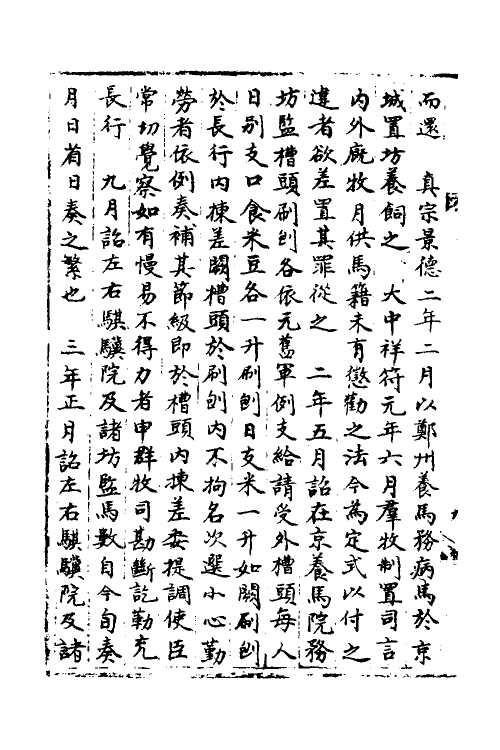 而還　真宗景德二年二月以鄭州養馬務病馬於京
城置坊養飼之　大中祥符元年六月羣牧制置司言
内外廐牧月供馬籍未有懲勸之法今為定式以付之
違者欲差置其罪從之　二年五月詔在京養馬院務
坊監槽頭刷刨各依元舊軍例支給請受外槽頭每人
日别支口食米豆各一升刷刨日支米一升如闕刷刨
於長行内揀差闕槽頭於刷刨内不拘名次選小心勤
勞者依例奏補其節級即於槽頭内揀差委提調使臣
常切覺察如有慢易不得力者申群牧司勘斷訖勒充
長行　九月詔左右騏驥院及諸坊監馬數自今旬奏
月日首日奏之繁也　三年正月詔左右騏驥院及諸